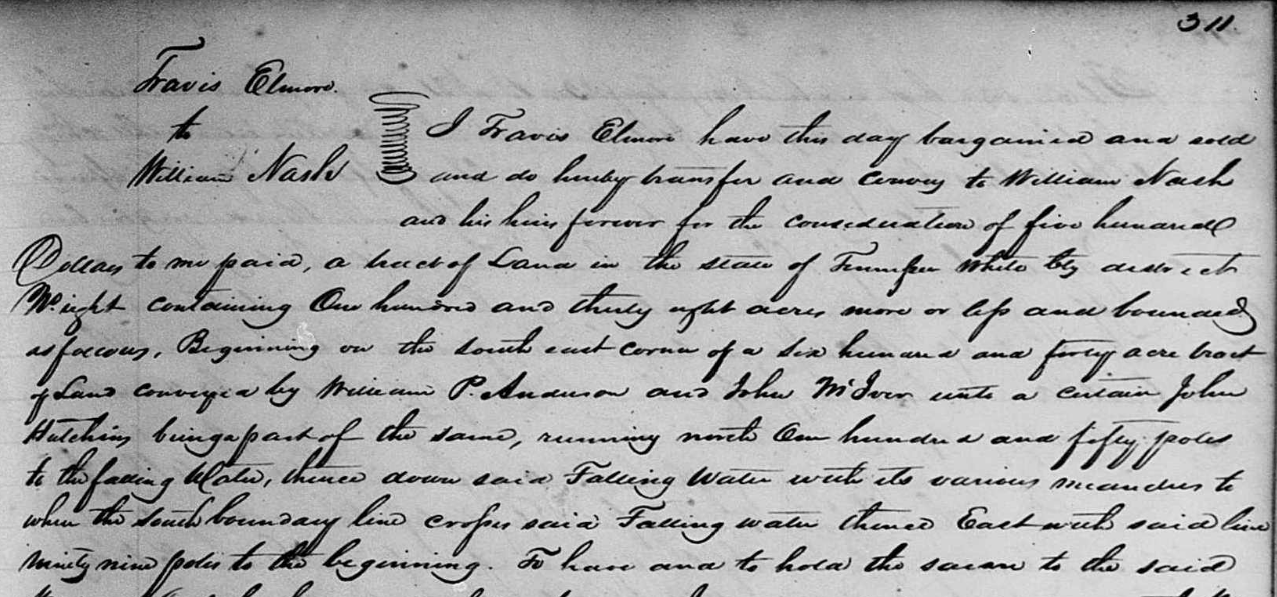 311.
Travis Elmore
to
William Nash
I Travis Elmore have this day bargained and sold
and do hereby transfer and convey to William Nash
and his heirs forever for the consideration of five hundred
Dollars to me paid, a tract of Land in the state of Tennessee White Cty district
No. eight containing One hundred and thirty eight acres more or less and bounded
as follows, Beginning on the south east corner of a six hundred and forty acre tract
of Land conveyed by William P. Anderson and John McIver unto a certain John
Hutchins being a part of the same, running north One hundred and fifty poles
to the falling Water, thence down said Falling Water with its various meanders to
where the South boundary line crosses said Falling water thence East with said line
ninety nine poles to the beginning. To have and to hold the same to the said